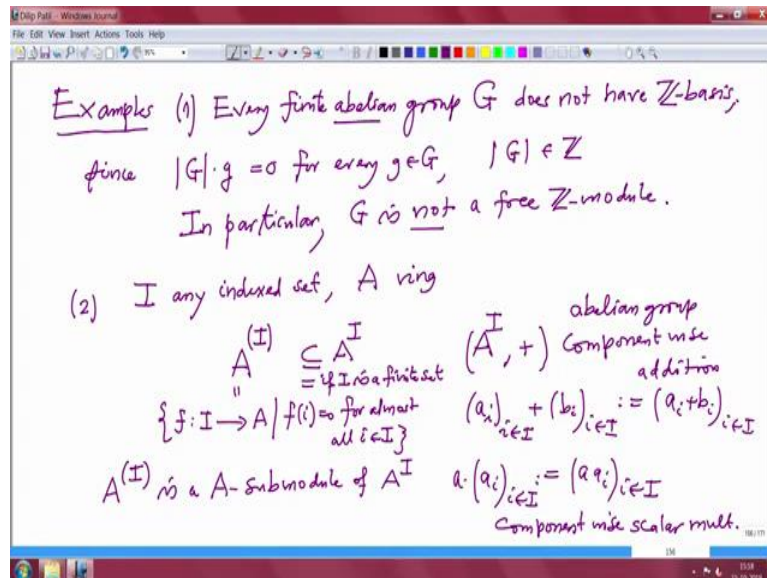 Dilip Patil - Windows Journal
File Edit View Insert Actions Tools Help
Examples (1) Every finite abelian group G does not have ℤ-basis,
since |G|·g = 0 for every g∈G, |G| ∈ ℤ
In particular, G is not a free ℤ-module.
(2) I any indexed set, A ring
A^(I) ⊆ A^I
= if I is a finite set
(A^I, +) abelian group
Component wise
addition
"
{f: I → A | f(i)=0 for almost
all i∈I}
(a_i)_{i∈I} + (b_i)_{i∈I} := (a_i+b_i)_{i∈I}
A^(I) is a A-submodule of A^I
a·(a_i)_{i∈I} := (a a_i)_{i∈I}
Component wise scalar mult.
156
15:58